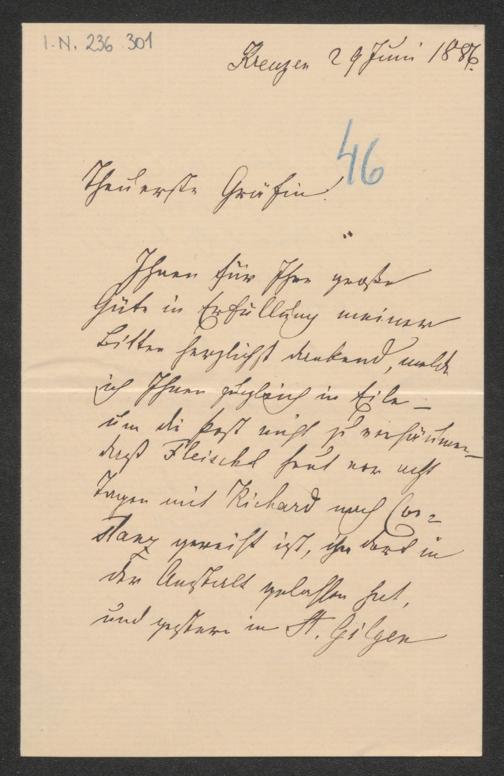 I.N. 236 301
Kreuzen 29 Juni 1886.
46
Theuerste Gräfin!
Ihnen für Ihre große
Güte in Erfüllung meiner
Bitten herzlichst dankend, melde
ich Ihnen zugleich in Eile –
um die Post nicht zu versäumen –
daß Fleischl heut vor acht
Tagen mit Richard nach Con=
stanz gereist ist, ihn dort in
der Anstalt gelassen hat,
und gestern in St. Gilgen